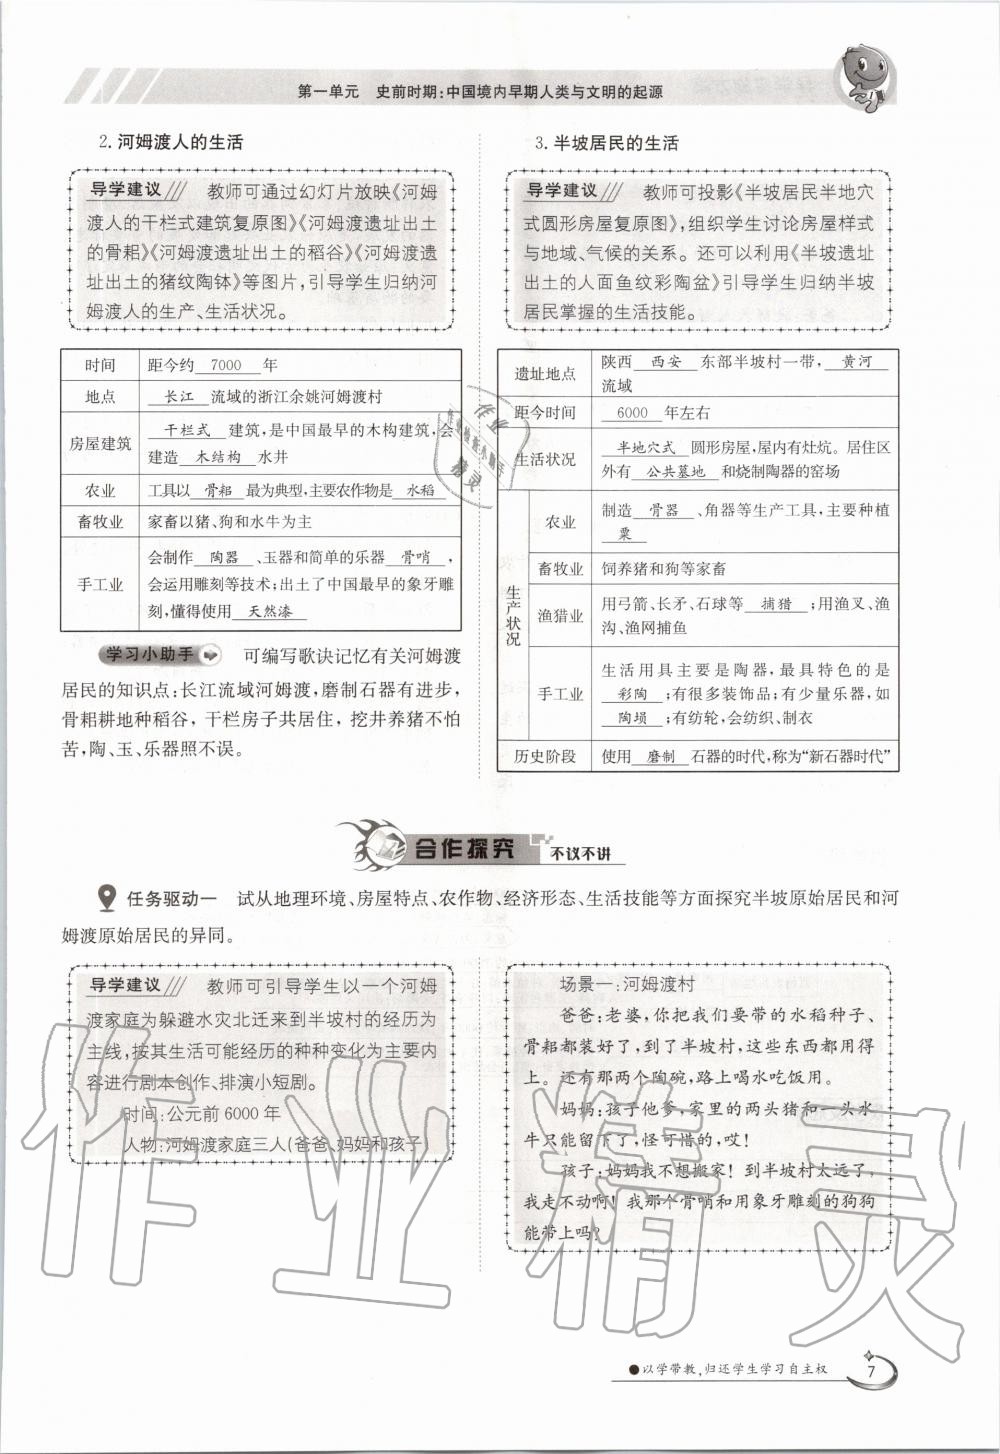 第一单元　史前时期:中国境内早期人类与文明的起源
2. 河姆渡人的生活
导学建议 教师可通过幻灯片放映《河姆
渡人的干栏式建筑复原图》《河姆渡遗址出土
的骨耜》《河姆渡遗址出土的稻谷》《河姆渡
遗址出土的猪纹陶钵》等图片,引导学生归纳河
姆渡人的生产、生活状况。
时间 距今约 7000 年
地点 长江 流域的浙江余姚河姆渡村
房屋建筑 干栏式 建筑,是中国最早的木构建筑,会
建造 木结构 水井
农业 工具以 骨耜 最为典型,主要农作物是 水稻
畜牧业 家畜以猪、狗和水牛为主
手工业 会制作 陶器 、玉器和简单的乐器 骨哨 ,
会运用雕刻等技术;出土了中国最早的象牙雕
刻,懂得使用 天然漆
学习小助手 可编写歌诀记忆有关河姆渡
居民的知识点:长江流域河姆渡,磨制石器有进步,
骨耜耕地种稻谷,干栏房子共居住,挖井养猪不怕
苦,陶、玉、乐器照不误。
3. 半坡居民的生活
导学建议 教师可投影《半坡居民半地穴
式圆形房屋复原图》,组织学生讨论房屋样式
与地域、气候的关系。还可以利用《半坡遗址
出土的人面鱼纹彩陶盆》引导学生归纳半坡
居民掌握的生活技能。
遗址地点 陕西 西安 东部半坡村一带, 黄河
流域
距今时间 6000 年左右
生活状况 半地穴式 圆形房屋,屋内有灶炕。居住区
外有 公共墓地 和烧制陶器的窑场
生产状况
农业 制造 骨器 、角器等生产工具,主要种植
粟
畜牧业 饲养猪和狗等家畜
渔猎业 用弓箭、长矛、石球等 捕猎 ;用渔叉、渔
沟、渔网捕鱼
手工业 生活用具主要是陶器,最具特色的是
彩陶 ;有很多装饰品;有少量乐器,如
陶埙 ;有纺轮,会纺织、制衣
历史阶段 使用 磨制 石器的时代,称为“新石器时代”
合作探究 不议不讲
任务驱动一 试从地理环境、房屋特点、农作物、经济形态、生活技能等方面探究半坡原始居民和河
姆渡原始居民的异同。
导学建议 教师可引导学生以一个河姆
渡家庭为躲避水灾北迁来到半坡村的经历为
主线,按其生活可能经历的种种变化为主要内
容进行剧本创作、排演小短剧。
时间:公元前6000年
人物:河姆渡家庭三人(爸爸、妈妈和孩子)
场景一:河姆渡村
爸爸:老婆,你把我们要带的水稻种子、
骨耜都装好了,到了半坡村,这些东西都用得
上。还有那两个陶碗,路上喝水吃饭用。
妈妈:孩子他爹,家里的两头猪和一头水
牛只能留下了,怪可惜的,哎!
孩子:妈妈我不想搬家!到半坡村太远了,
我走不动啊!我那个骨哨和用象牙雕刻的狗狗
能带上吗?
作业精灵
●以学带教,归还学生学习自主权
7